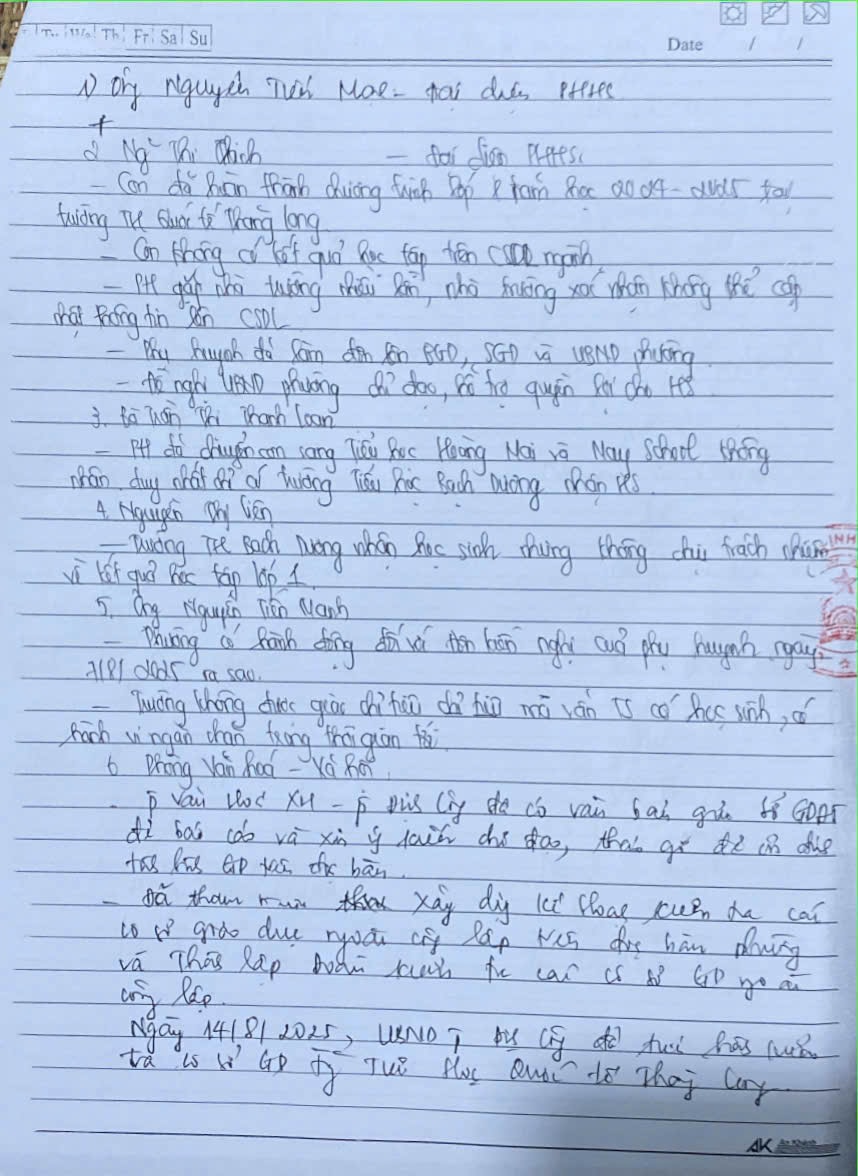 Th Fr Sa Su
Date / /
1) Ông Nguyễn Tiến - đại diện PHHS
+
2 Ng Thị Bích - đại diện PHHS
- Con đã hoàn thành chương trình lớp 1 năm học 2024-2025 tại
trường TH Quốc tế Thăng Long
- Con không có kết quả học tập trên CSDL ngành
- PH gặp nhà trường nhiều lần, nhà trường xác nhận không thể cập
nhật thông tin lên CSDL
- Phụ huynh đã làm đơn lên BGD, SGD và UBND phường
- Đề nghị UBND phường chỉ đạo, hỗ trợ quyền lợi cho HS
3. Bà Trần Thị Thanh Loan
- PH đã chuyển con sang Tiểu học Hoàng Mai và May School không
nhận duy nhất chỉ có trường Tiểu học Bạch Dương nhận HS.
4. Nguyễn Thị Liên
- Trường TH Bạch Dương nhận học sinh nhưng không chịu trách nhiệm
về kết quả học tập lớp 1
5. Ông Nguyễn Tiến Mạnh
- Phường có hành động đối với đơn kiến nghị của phụ huynh ngày
7/8/2025 ra sao.
- Trường không được giao chỉ tiêu mà vẫn TS có học sinh, có
hành vi ngăn chặn trong thời gian tới.
6 Phòng Văn hoá - Xã hội
- P Văn hoá XH - P đã có văn bản gửi Sở GDĐT
để báo cáo và xin ý kiến chỉ đạo, tháo gỡ để
GD trên địa bàn.
- Đã tham mưu xây dựng kế hoạch kiểm tra các
cơ sở giáo dục ngoài công lập trên địa bàn phường
và Thành lập Đoàn kiểm tra các cơ sở GD ngoài
công lập.
Ngày 14/8/2025, UBND đã kiểm
tra cơ sở GD Tiểu học Quốc tế Thăng Long
AK An Khánh